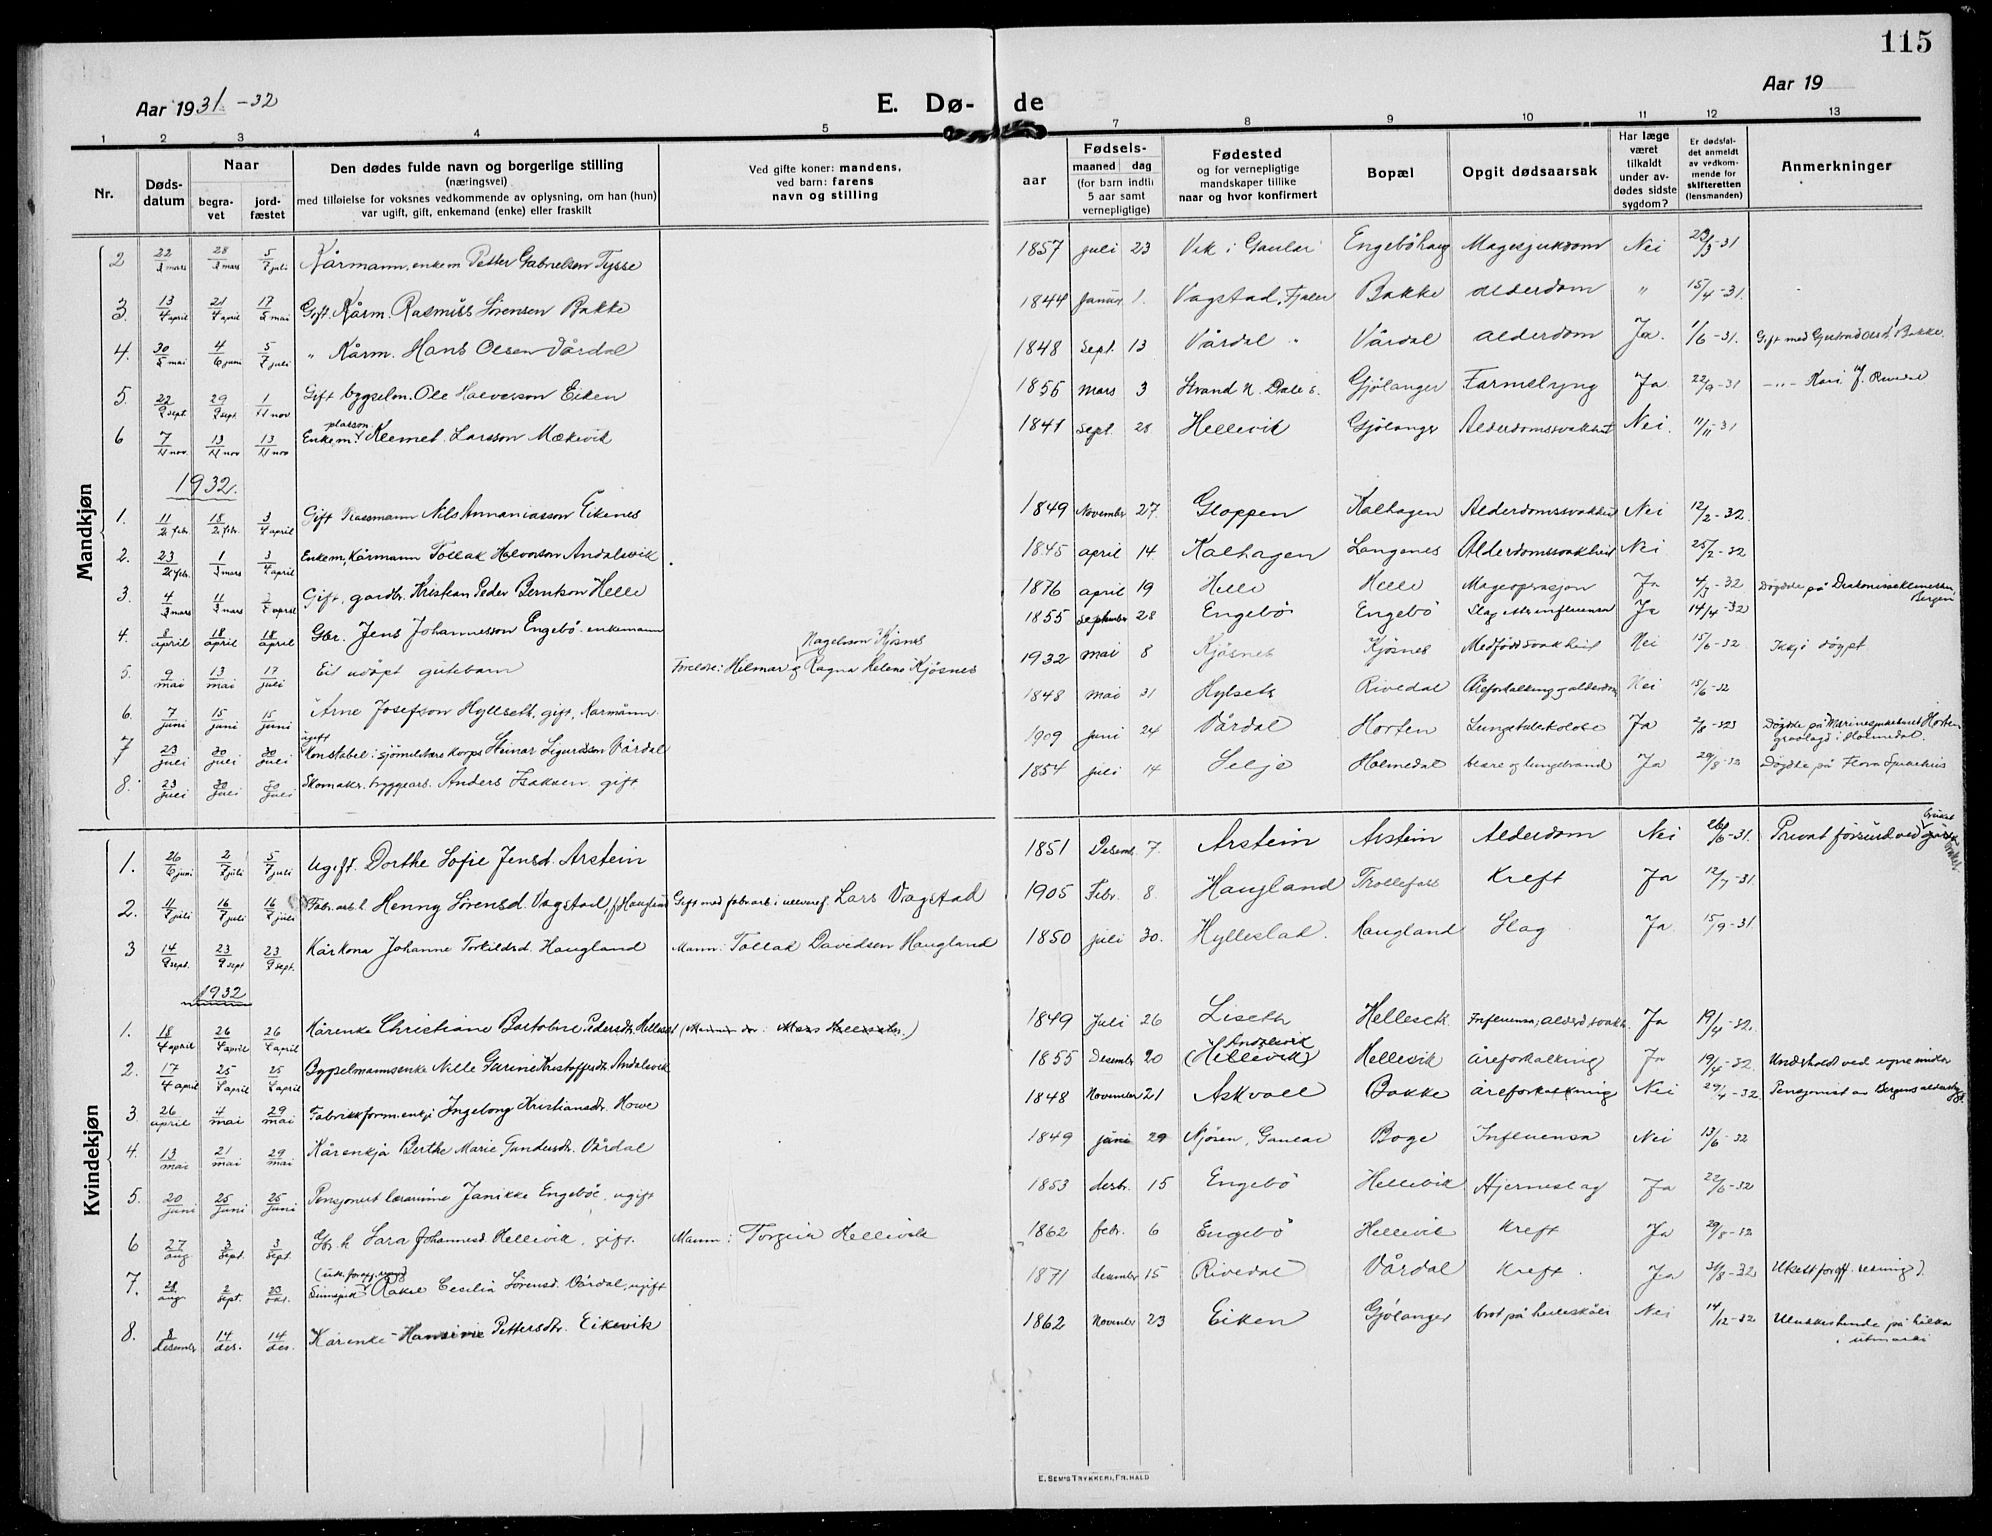 115
Aar 1931-32
E. Dø- de
Aar 19
1 2 3 4 5 7 8 9 10 11 12 13
Nr.
Døds-
datum
Naar
begra-
vet
jord-
fæstet
Den dødes fulde navn og borgerlige stilling
(næringsvei)
med tilføielse for voksnes vedkommende av oplysning, om han (hun)
var ugift, gift, enkemand (enke) eller fraskilt
Ved gifte koner: mandens,
ved barn: farens
navn og stilling
aar
Fødsels-
maaned dag
(for barn indtil
5 aar samt
vernepligtige)
Fødested
og for vernepligtige
mandskaper tillike
naar og hvor konfirmert
Bopæl
Opgit dødsaarsak
Har læge
været
tilkaldt
under av-
dødes sidste
sygdom?
Er dødsfal-
det anmeldt
av vedkom-
mende for
skifteretten
(lensmanden)
Anmerkninger
Mandkjøn
2 22/3 mars 28/3 mars 5/7 juli Kårmann, enkem. Petter Gabrielsen Tysse 1857 juli 23 Vik i Gaular Engebøhaug Magesjukdom Nei 23/3-31
3. 13/4 april 21/4 april 17/5 mai Gift. Kårm. Rasmus Sørensen Bakke 1844 Januar 1. Vagstad, Fjaler Bakke alderdom " 15/4-31.
4. 30/5 mai 4/6 juni 5/7 juli " Kårm. Hans Olsen Vårdal 1848 Sept. 13 Vårdal " Vårdal alderdom Ja. 1/6-31. Gift med Gjertrud Bakke.
5. 22/9 sept. 29/9 sept. 1/11 nov Gift bygselm. Ole Halvorson Eiken 1856 Mars 3 Strand N. Dale s. Gjølanger Ja 22/9-31 -"- Kari J. Rivedal
6 7/11 nov. 13/11 nov 13/11 nov Enkem. plassm. Klemet Larsson Mækevik 1841 Sept. 28 Hellevik Gjølanger Alderdomssvakheit Nei. 11/11-31
1932.
1. 11/2 febr. 18/2 febr. 3/4 april Gift Plassmann Nils Annaniasson Eikenes 1849 November 27. Gloppen Kalhagen Alderdomssvakheit Nei 12/2-32.
2. 23/2 febr. 1/3 mars 3/4 april Enkem, Kårmann Tollak Halvorson Andalsvik 1845 april 14 Kalhagen Langenes Alderdomssvakheit Nei 25/2-32
3. 4/3 mars 11/3 mars april Gift, gardbr. Kristian Peder Berntson Helle 1876 april 19 Helle Helle Mageoprasjon Ja 4/3-32 Døydde på Diakonissehjemmet, Bergen
4. 8/april 18/april 18/april Gbr. Jens Johannesson Engebø enkemann 1855 September 28 Engebø Engebø Slag etter influensa Ja 14/4-32
5. 9/mai 13/mai 17/juli Eit udøpt gutebarn Foreldre: Hilmar Nagelson Kjøsnes og Ragna Helene Kjøsnes 1932 mai 8 Kjøsnes Kjøsnes Medføddsvakheit Nei 15/6-32 Ikkje døypt
6. 7/juni 15/juni 15/juni Arne Josefson Hyllseth, gift, Kårmann 1848 mai 31 Hylseth Rivedal Åreforkalking, alderdom Nei 15/6-32
7 23/juli 30/juli 30/juli ugift Konstabel i sjømilitære korps Steinar Sigurdsson Vårdal 1909 juni 24 Vårdal Horten Lungetuberkolose Ja Døydde på Marinesjukehuset Horten gravlagd i Holmedal.
8. 23/juli 30/juli 30/juli Skomakr. byggearb. Anders Isaksen gift 1854 juli 14 Selje Holmedal blære og lungebrand Ja 29/8-32 Døydde på Florø Sjukehus
Kvindekjøn
1. 26/6 juni 2/7 juli 5/7 juli Ugift. Dorthe Sofie Jensd. Arstein 1851 Desemb. 7. Arstein Arstein Alderdom Nei 26/6-31. Privat forsørd ved
2. 11/7 juli 16/7 juli 16/7 juli Fabr. arb. h Henny Sørensd. Vagstad, f. Haugland Gift med fabr. arb. i ullvaref. Lars Vagstad 1905 Febr. 8. Haugland Trollefoss Kreft Ja 12/7-31
3 14/9 sept. 23/9 sept 23/9 sept. Kårkona Johanne Torkildsd. Haugland Mann: Tollak Davidsen Haugland 1850 juli 30. Hyllestad. Haugland Slag Ja. 15/9-31.
1932
1. 18/4 april 26/4 april 26/4 april Kårenke Christiane Bertoline Pedersdtr. Helleset (Mannen dø: Mons Hellesetr.) 1849 Juli 26 Liseth Helleseth Influensa, alderd. svakh. Ja 19/4-32.
2. 17/4 april 25/4 april 25/4 april Bygselmannsenke Nille Garine Kristoffersdtr. Andalsvik 1855 Desember 20 Andalsvik (Hellevik) Hellevik åreforkalking Ja 19/4-32. Underholdt ved egne midler
3 26/april 4/mai 29/mai Fabrikkform. enkje Ingeborg Kristiansdtr. Howe 1848 November 21 Askvoll Bakke åreforkalkning Nei 29/4-32 Pensjonist av Bergens alderstrygd
4. 13/mai 21/mai 29/mai Kårenkja Berthe Marie Gundersdtr. Vårdal 1849 juni 29 Njøsen, Gaular Boge Influensa Nei 13/6-32
5. 20/juni 25/juni 25/juni Pensjonert lærarinne Janikke Engebø, ugift 1853 desbr. 15 Engebø Hellevik Hjerneslag Ja 22/6-32
6 27/aug 3/sept. 3/sept. Gbr. k Sara Johannesd. Hellevik, gift. Mann: Torgeir Hellevik 1862 febr. 6 Engebø Hellevik Kreft Ja 29/8-32
7. 28/aug 2/sept. 23/okt. (utk. foroff. resning) Sinnsjuk Rakel Cecilia Sørensd. Vårdal, ugift 1871 desember 15 Rivedal Vårdal Kreft. Ja 31/8-32 Utsett foroff. resning).
8. 8/desembr. 14/des. 14/des. Kårenke Hansine Pettersdtr. Eikevik 1862 November 23 Eiken Gjølanger brot på heileskåli Nei 14/12-32 Ulukkeshende på hålka i utmarki
E. SEM'S TRYKKERI, FR. HALD